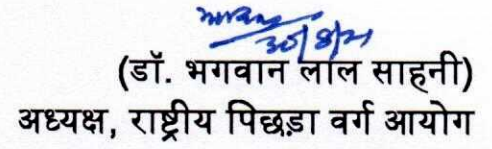 30/8/21
(डॉ. भगवान लाल साहनी)
अध्यक्ष, राष्ट्रीय पिछड़ा वर्ग आयोग